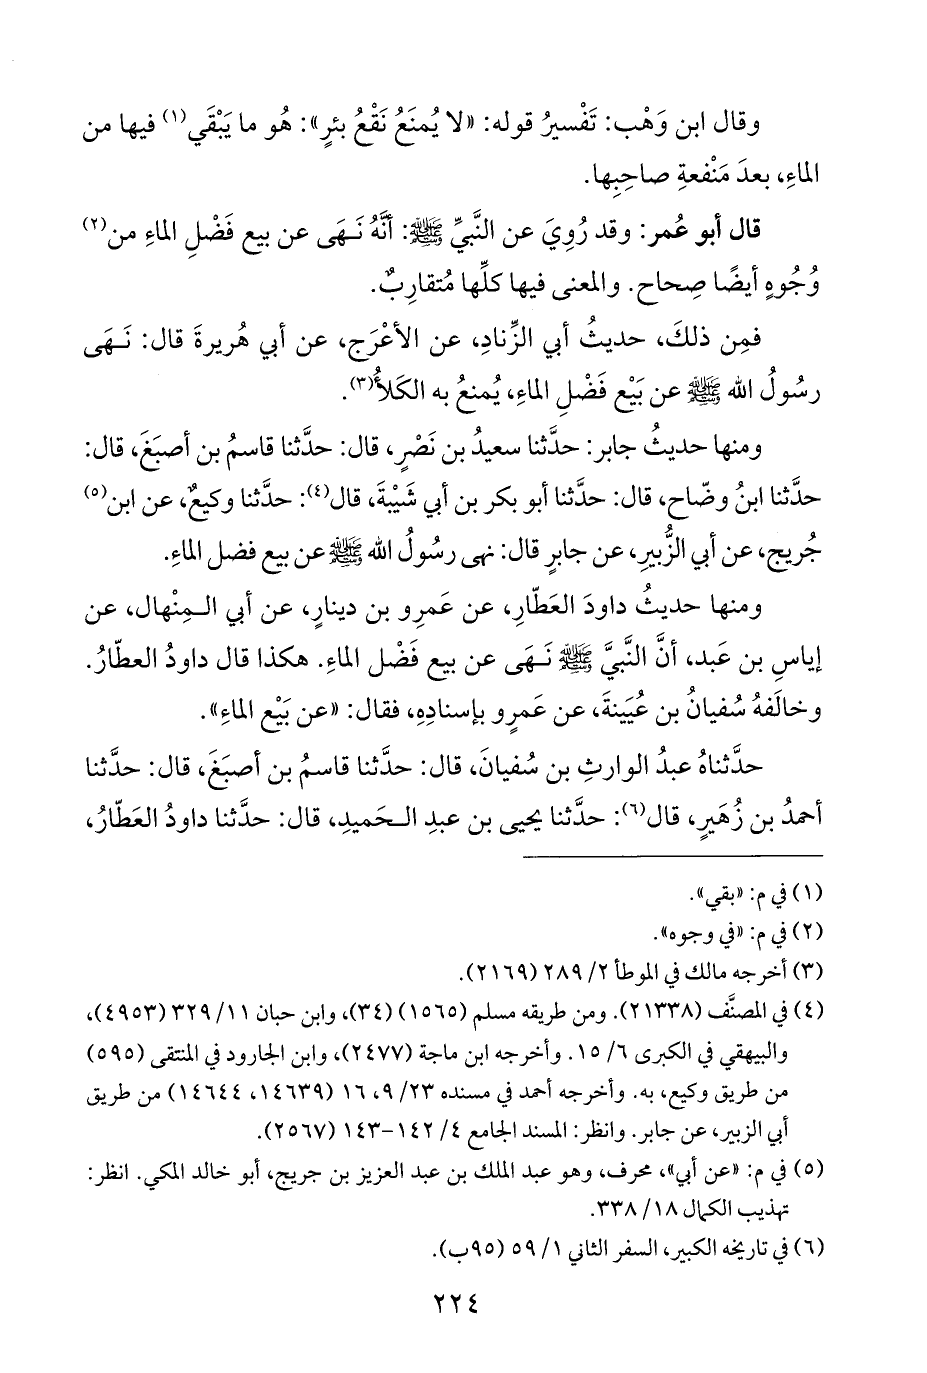 وقال ابن وَهْب: تَفْسيرُ قوله: «لا يُمنَعُ نَقْعُ بئرٍ»: هُو ما يَبْقَي(١) فيها من
الماءِ، بعدَ مَنْفعةِ صاحِبِها.
قال أبو عُمر: وقد رُوِيَ عن النَّبيِّ ﷺ: أنَّهُ نَـهَى عن بيع فَضْلِ الماءِ من(٢)
وُجُوهٍ أيضًا صِحاح. والمعنى فيها كلِّها مُتقارِبٌ.
فمِن ذلكَ، حديثُ أبي الزِّنادِ، عن الأعْرَج، عن أبي هُريرةَ قال: نَـهَى
رسُولُ الله ﷺ عن بَيْع فَضْلِ الماءِ، يُمنعُ به الكَلأُ(٣).
ومنها حديثُ جابر: حدَّثنا سعيدُ بن نَصْرٍ، قال: حدَّثنا قاسمُ بن أصبَغَ، قال:
حدَّثنا ابنُ وضّاح، قال: حدَّثنا أبو بكر بن أبي شَيْبةَ، قال(٤): حدَّثنا وكيعٌ، عن ابن(٥)
جُريج، عن أبي الزُّبيرِ، عن جابرٍ قال: نهى رسُولُ الله ﷺ عن بيع فضل الماءِ.
ومنها حديثُ داودَ العَطّارِ، عن عَمرِو بن دينارٍ، عن أبي الـمِنْهال، عن
إياسِ بن عَبد، أنَّ النَّبيَّ ﷺ نَـهَى عن بيع فَضْل الماءِ. هكذا قال داودُ العطّارُ.
وخالَفهُ سُفيانُ بن عُيَينةَ، عن عَمرٍو بإسنادِهِ، فقال: «عن بَيْع الماءِ».
حدَّثناهُ عبدُ الوارثِ بن سُفيانَ، قال: حدَّثنا قاسمُ بن أصبَغَ، قال: حدَّثنا
أحمدُ بن زُهَيرٍ، قال(٦): حدَّثنا يحيى بن عبدِ الـحَميدِ، قال: حدَّثنا داودُ العَطّارُ،
(١) في م: «بقي».
(٢) في م: «في وجوه».
(٣) أخرجه مالك في الموطأ ٢/ ٢٨٩ (٢١٦٩).
(٤) في المصنَّف (٢١٣٣٨). ومن طريقه مسلم (١٥٦٥) (٣٤)، وابن حبان ١١/ ٣٢٩ (٤٩٥٣)،
والبيهقي في الكبرى ٦/ ١٥. وأخرجه ابن ماجة (٢٤٧٧)، وابن الجارود في المنتقى (٥٩٥)
من طريق وكيع، به. وأخرجه أحمد في مسنده ٢٣/ ٩، ١٦ (١٤٦٣٩، ١٤٦٤٤) من طريق
أبي الزبير، عن جابر. وانظر: المسند الجامع ٤/ ١٤٢-١٤٣ (٢٥٦٧).
(٥) في م: «عن أبي»، محرف، وهو عبد الملك بن عبد العزيز بن جريج، أبو خالد المكي. انظر:
تهذيب الكمال ١٨/ ٣٣٨.
(٦) في تاريخه الكبير، السفر الثاني ١/ ٥٩ (٩٥ب).
٢٢٤